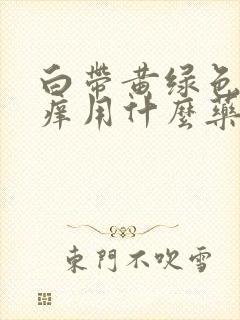 白带黄绿色
痒用什麼藥
東門不吹雪